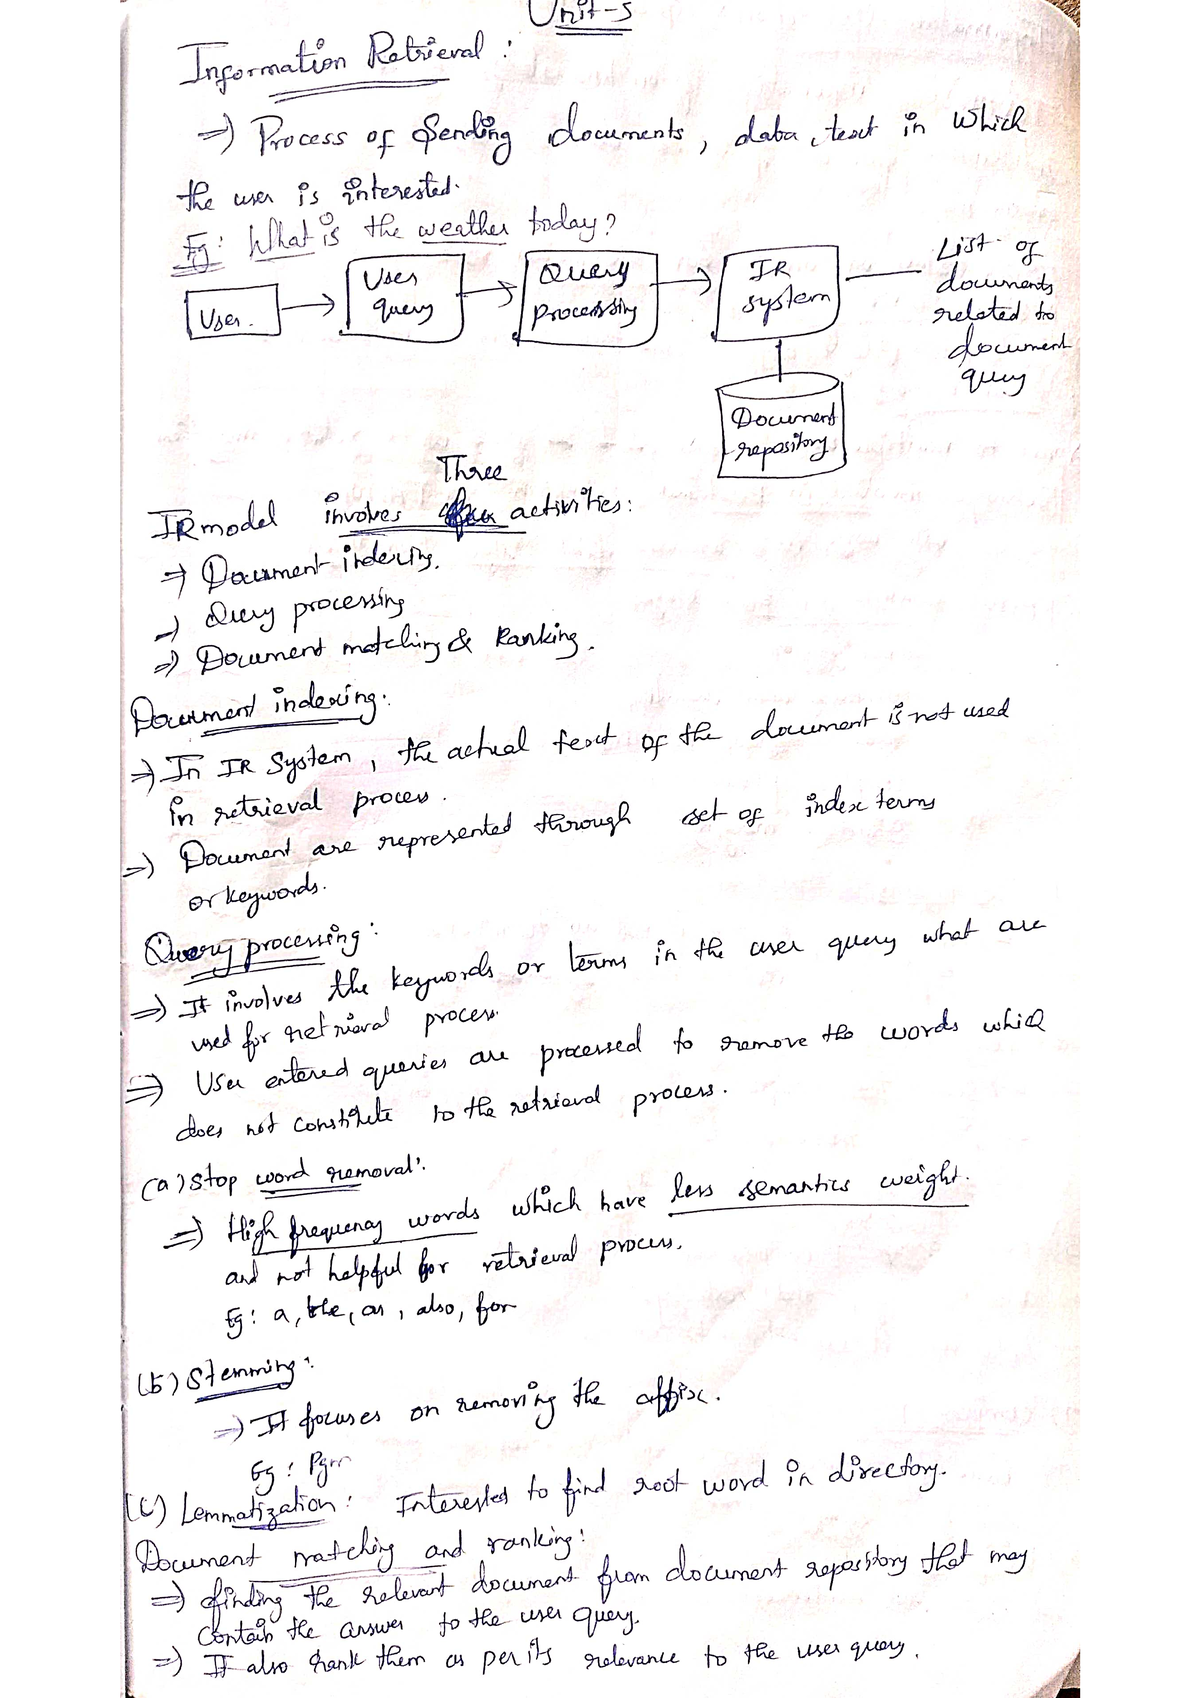 Unit-5
Information Retrieval :
=> Process of Sending documents, data, text in which
the user is interested.
Eg: What is the weather today?
User.
User
query
Query
processing
IR
system
List of
documents
related to
document
query
Document
repository
Three
IR model involves activities:
=> Document indexing.
=> Query processing
=> Document matching & Ranking.
Document indexing:
=> In IR System, the actual text of the document is not used
in retrieval process.
=> Document are represented through set of index terms
or keywords.
Query processing:
=> It involves the keywords or terms in the user query what are
used for retrieval process.
=> User entered queries are processed to remove the words which
does not constitute to the retrieval process.
(a) Stop word removal:
=> High frequency words which have less semantics weight.
and not helpful for retrieval process.
Eg: a, the, as, also, for
(b) Stemming:
=> It focuses on removing the affix.
Eg:
(c) Lemmatization: Interested to find root word in directory.
Document matching and ranking:
=> finding the relevant document from document repository that may
Contain the answer to the user query.
=> It also rank them as per its relevance to the user query.